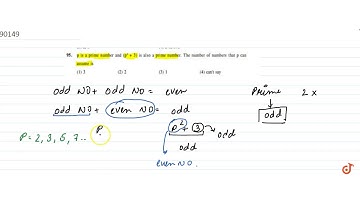 90149
15. p is a prime number and (p² + 3) is also a prime number. The number of numbers that p can
assume is
(1) 3 (2) 2 (3) 1 (4) can't say
odd NO + odd NO = even
odd NO + even NO = odd
Prime 2 x
odd
p² + 3 → odd
odd
even NO.
P = 2, 3, 5, 7 .. P.